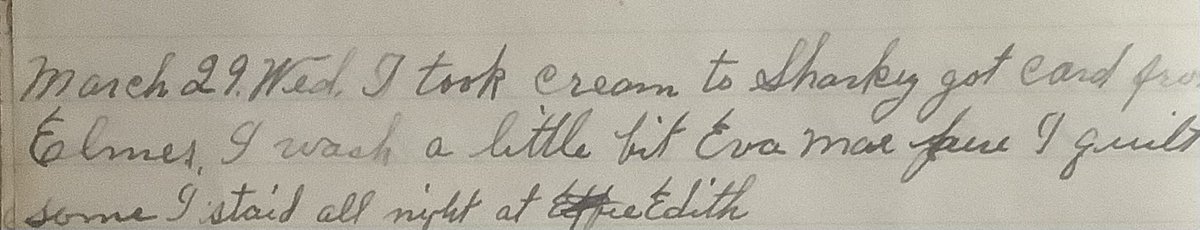 March 29. Wed. I took cream to Sharkey got card fro
Elmer, I wash a little bit Eva Mae I quilt
some I staid all night at Edith